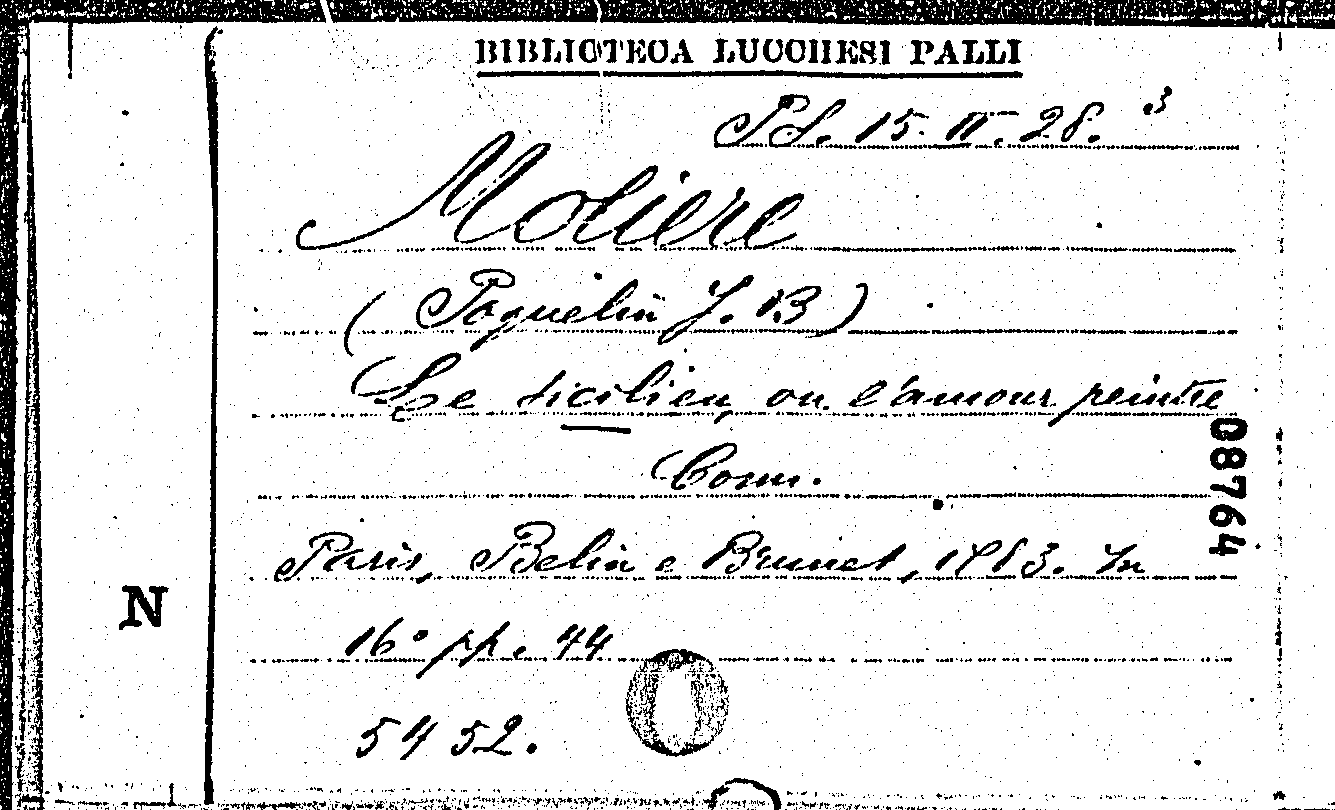 BIBLIOTECA LUCCHESI PALLI
PS. 15. IV. 28. 3
Moliere
( Poquelin J. B )
Le sicilien, ou l'amour peintre
Com.
Paris, Belin e Brunet, 1783. In
16° pp. 44
5452.
N
08764